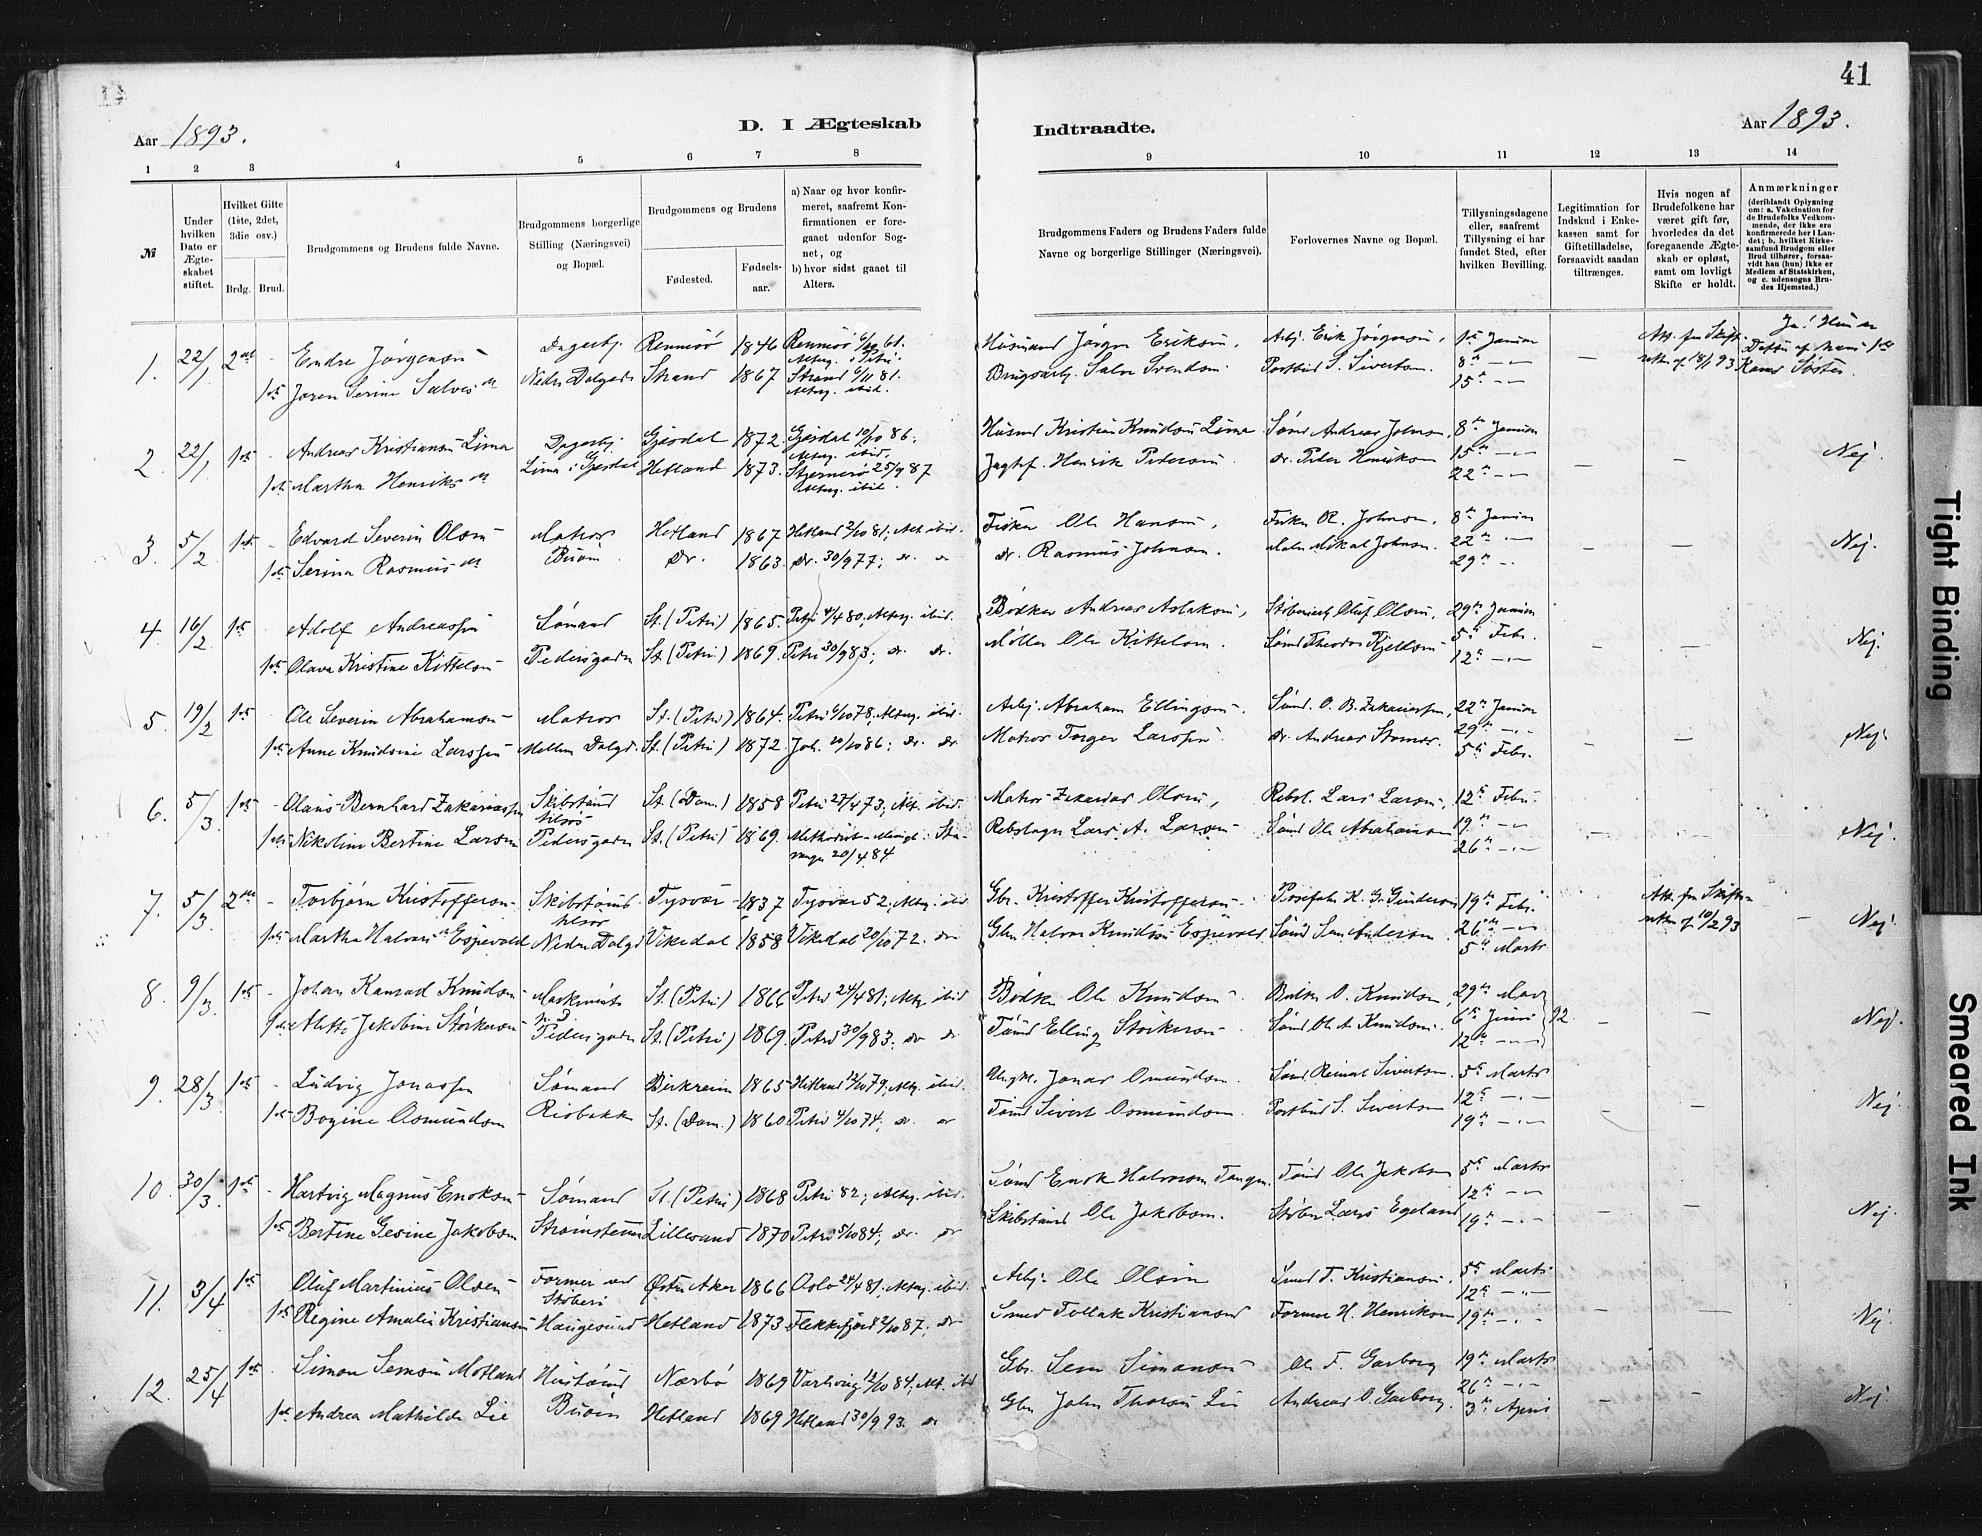 41
Aar 1893.
D. I Ægteskab
Indtraadte.
Aar 1893.
1 2 3 4 5 6 7 8 9 10 11 12 13 14
№
Under hvilken Dato er Ægteskabet stiftet.
Hvilket Gifte (1ste, 2det, 3die osv.)
Brdg. Brud.
Brudgommens og Brudens fulde Navne.
Brudgommens borgerlige Stilling (Næringsvei) og Bopæl.
Brudgommens og Brudens
Fødested.
Fødselsaar.
a) Naar og hvor konfirmeret, saafremt Konfirmationen er foregaaet udenfor Sognet, og
b) hvor sidst gaaet til Alters.
Brudgommens Faders og Brudens Faders fulde Navne og borgerlige Stillinger (Næringsvei).
Forlovernes Navne og Bopæl.
Tillysningsdagene eller, saafremt Tillysning ei har fundet Sted, efter hvilken Bevilling.
Legitimation for Indskud i Enkekassen samt for Giftetilladelse, forsaavidt saadan tiltrænges.
Hvis nogen af Brudefolkene har været gift før, hvorledes da det foregaaende Ægteskab er opløst, samt om lovligt Skifte er holdt.
Anmærkninger (deriblandt Oplysning om: a. Vakcination for de Brudefolks Vedkommende, der ikke ere konfirmerede her i Landet; b. hvilket Kirkesamfund Brudgom eller Brud tilhører, forsaavidt han (hun) ikke er Medlem af Statskirken, og c. udensogns Brudes Hjemsted.)
1. 22/1 2det - Endre Jørgensen Dagarbj. Rennesø 1846 Rennesø 6/10 61. Husmand Jørgen Eriksen, Arbj. Erik Jørgensen, 1ste Januar
1ste Joren Serine Salves dt Nedre Dalgade Strand 1867 Strand 6/11 81. Alterg. ibid. Brugsarb. Salve Svendsen Postbud S. Sivertsen 8de 15de
2. 22/1 1ste - Andreas Kristiansen Lima Dagarbj. Gjesdal 1872 Gjesdal 10/10 86; Husmd Kristian Knudsen Lima Sømd Andreas Johnsen, 8de Januar Nej.
1ste Martha Henriks dt Lima i Gjesdal Hetland 1873. Stjernerø 25/9 87 Alterg. ibid. Henrik Pedersen do. Peder Henriksen 15de 22de
3. 5/2 1ste - Edvard Severin Olsen Matros Hetland 1867 Hetland 2/10 81; Alt. ibid. Fisker Ole Hansen, Fisker R. Johnsen, 8de Januar Nej.
1ste Serina Rasmus dt Buøen do. 1863. do. 30/9 77; do. do. Rasmus Johnsen. Mikal Johnsen. 22de 29de
4. 16/2 1ste Adolf Andreassen Sømand St. (Petri) 1865. Petri 4/4 80, Alterg. ibid. Bødker Andreas Aslaksen, Støberiarb. Oluf Olsen, 29de Januar Nej.
1ste Olava Kristine Kittelsen Pedersgaden St. (Petri) 1869. Petri 30/9 83; do. do. Møller Ole Kittelsen. Sømd Theodor Kjeldsen 5te Febr. 12te
5. 19/2 1ste - Ole Severin Abrahamsen Matros St. (Petri) 1864. Petri 6/10 78, Alterg. ibid. Arbj. Abraham Ellingsen. Sømd. O. B. Zakariassen, 22de Januar Nej.
1ste Anne Knudsine Larssen Mellem Dalgd. St. (Petri) 1872. Joh. 10/10 86; do. do. Matros Torger Larssen do. Andreas 29de 5te Febr.
6. 5/3 1ste - Olaus Bernhard Zakariassen Skibstømd St. (Dom.) 1858 Petri 27/4 73; Alt. ibid. Matros Zakarias Olsen, Rebsl. Lars Larsen 12te Febr. Nej
1ste Nikoline Bertine Larsen Pedersgaden St. (Petri) 1869. Methodist Menigh. Stavanger 20/4 84 Rebslager Lars A. Larsen Sømd Ole Abrahamsen 19de 26de
7. 5/3 2det - Torbjørn Kristoffersen Skibstømd Tysvær 1837 Tysvær 52, Alterg. ibid Gbr. Kristoffer Kristoffersen K. G. Gundersen 19de Febr. Att. fra Skifteretten af 10/2 93 Nej
1ste Martha Halvors dt Espevold Nedre Dalgd Vikedal 1858 Vikedal 20/10 72. do Gbr. Halvor Knudsen Espevold Sømd 26de 5te Marts
8. 9/3 1ste - Johan Konrad Knudsen Maskinist St. (Petri) 1866 Petri 24/4 81; Alterg. ibid Bødker Ole Knudsen Bødker O. Knudsen, 29de Mai Nej.
1ste Alette Jakobine Størkersen Pedersgaden St. (Petri) 1869. Petri 30/9 83. do do Tømd Elling Størkersen Sømd Ole A. Knudsen. 6te Juni 12te 92.
9. 28/3 1ste - Ludvig Jonassen Sømand Birkreim 1865 Hetland 12/10 79, Alterg. ibid. Jonas Omundsen. Sømd. Reinert Sivertsen. 5te Marts Nej.
1ste Bogine Osmundsen Risbakken St. (Dom.) 1860 Petri 4/10 74; do. do Tømd Sivert Osmundsen. Postbud S. Sivertsen 12te 19de
10. 30/3 1ste - Hartvig Magnus Enoksen Sømand St. (Petri) 1868 Petri 82; Alterg. ibid. Sømd Enok Halvorsen Tangen. Tømd Ole Jakobsen 5te Marts Nej.
1ste Bertine Gesine Jakobsen Strømstenen Lillesand 1870 Petri 5/10 84; do. do Skibstømd Ole Jakobsen. Støber Lars Egeland 12te 19de
11. 3/4 1ste Oluf Martinius Olsen Former ved Støberi Østre Aker 1866 Oslo 24/4 81; Alterg. ibid. Arbj. Ole Olsen Smed T. Kristiansen, 5te Marts Nej.
1ste Regine Amalia Kristiansen Haugesund Hetland 1873 Flekkefjord 2/10 87; do Smed Tollak Kristiansen Former H. Henriksen 12te 19de
12. 25/4 1ste Simon Semsen Motland Hustømd Nærbø 1869 Varhaug 12/10 84; Alt. ibid Gbr. Sem Simonsen Ole F. Garborg 19de Marts Nej.
1ste Andrea Mathilde Lie Buøen Hetland 1869 Hetland 30/9 93. do Gbr John Thorsen Lie Andreas O. Garborg, 26de 3de April
Tight Binding
Smeared Ink